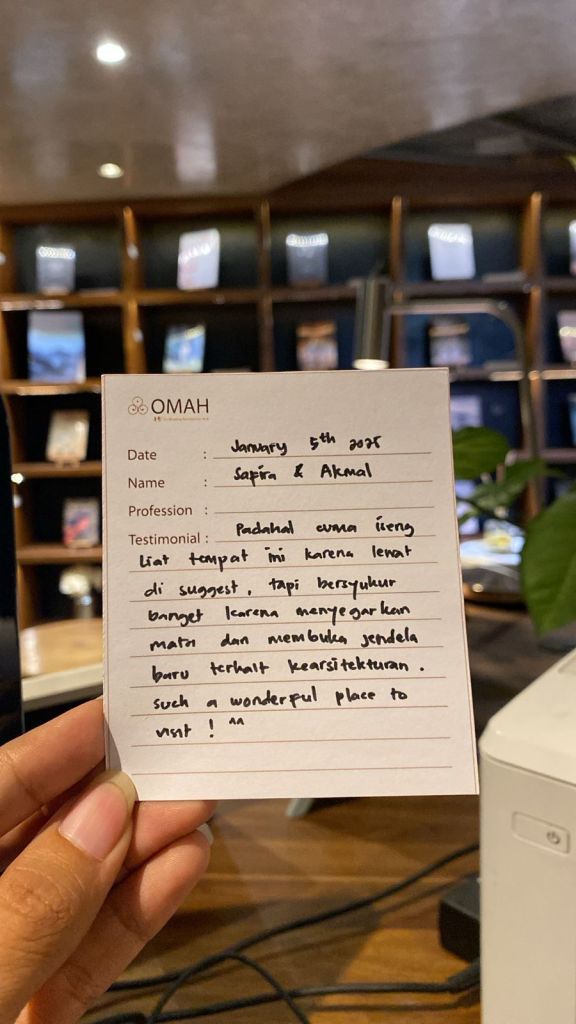 OMAH
Date : January 5th 2025
Name : Safira & Akmal
Profession :
Testimonial : Padahal cuma iseng
Liat tempat ini karena lewat
di suggest, tapi bersyukur
banget karena menyegarkan
mata dan membuka jendela
baru terhait kearsitekturan.
such a wonderful place to
visit ! ^^